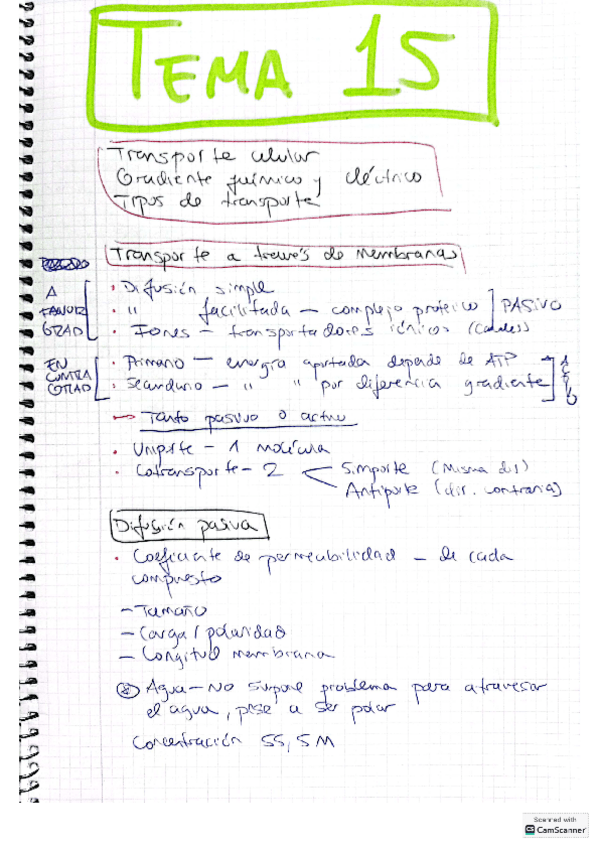 TEMA 15
Transporte celular
Gradiente químico y eléctrico
Tipos de transporte
Transporte a través de membranas
A FAVOR GRAD
· Difusión simple
· " facilitada — complejo proteico
· Iones — transportadores iónicos (canales)
PASIVO
EN CONTRA GRAD
· Primario — energía aportada depende de ATP
· Secundario — " " por diferencia gradiente
→ Tanto pasivo o activo
· Uniporte — 1 molécula
· Cotransporte — 2 < Simporte (misma dir)
Antiporte (dir. contraria)
Difusión pasiva
· Coeficiente de permeabilidad — de cada
compuesto
— Tamaño
— Carga / polaridad
— Longitud membrana
Agua — No supone problema para atravesar
el agua, pese a ser polar
Concentración 55,5 M
Scanned with
CS CamScanner